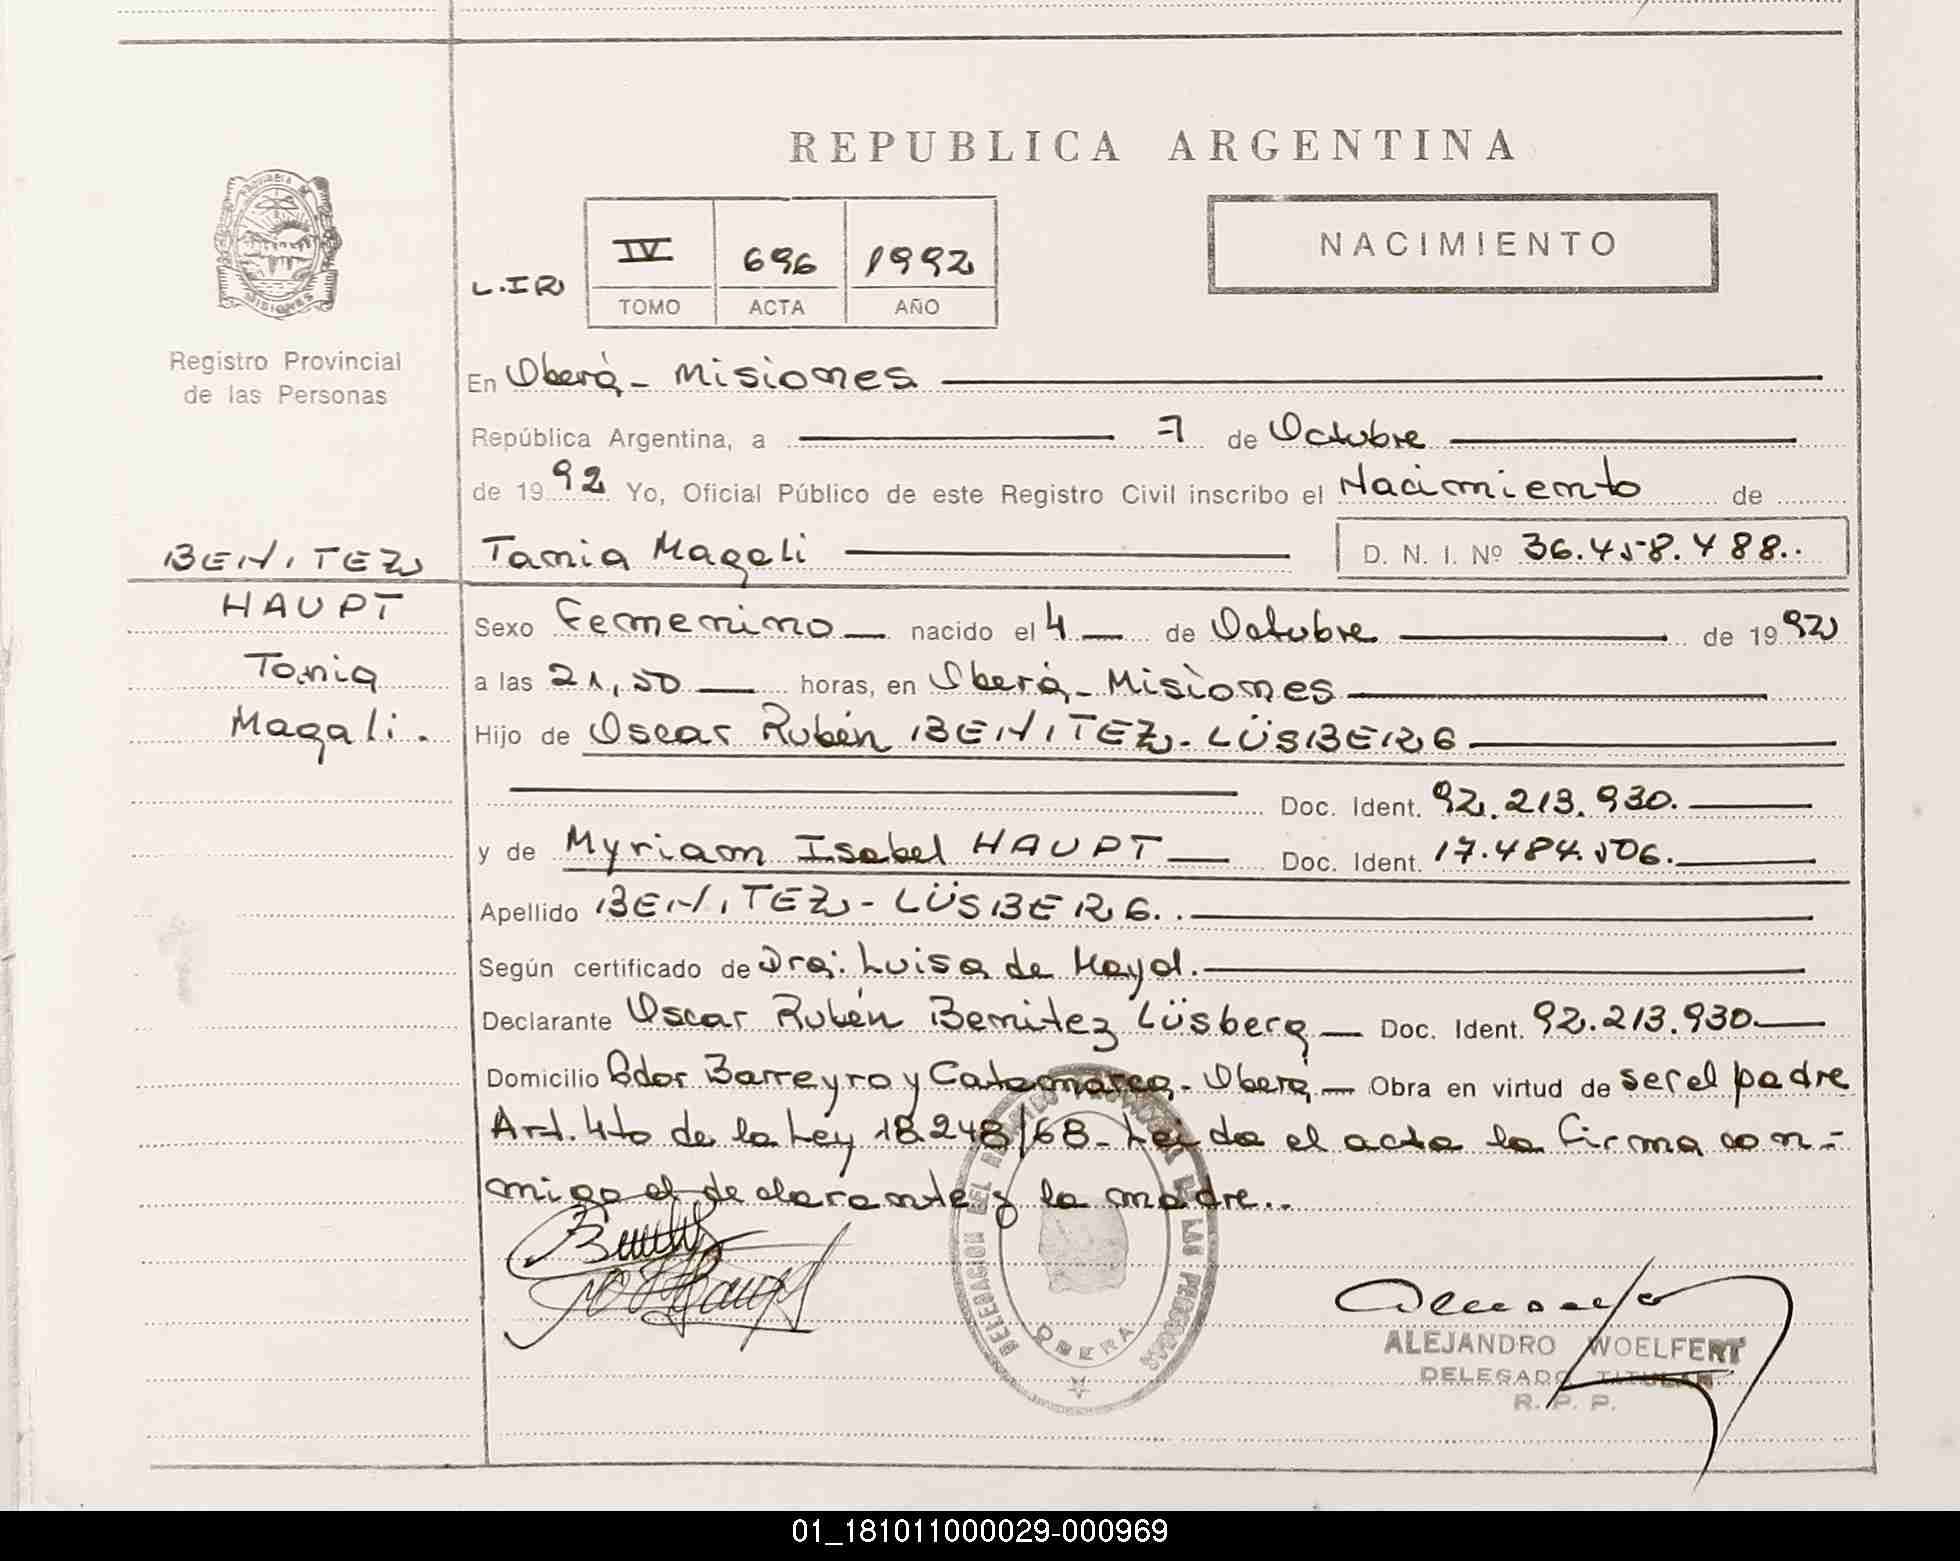 REPUBLICA ARGENTINA
MISIONES
Registro Provincial
de las Personas
L.IR
IV 696 1992
TOMO ACTA AÑO
NACIMIENTO
En Oberá - Misiones
República Argentina, a 7 de Octubre
de 1992 Yo, Oficial Público de este Registro Civil inscribo el Nacimiento de
BENITEZ
HAUPT
Tania
Magali.
Tania Magali D. N. I. Nº 36.458.488..
Sexo Femenino nacido el 4 de Octubre de 1992
a las 21,50 horas, en Oberá - Misiones
Hijo de Oscar Rubén BENITEZ - LÜSBERG
Doc. Ident. 92.213.930.
y de Myriam Isabel HAUPT Doc. Ident. 17.484.506.
Apellido BENITEZ - LÜSBERG..
Según certificado de Dra: Luisa de
Declarante Oscar Rubén Benitez Lüsberg Doc. Ident. 92.213.930
Domicilio Gdor Barreyro y Catamarca - Oberá - Obra en virtud de ser el padre
Art. 4to de la Ley 18.248/68 - Leida el acta la firma con-
migo el declarante y la madre..
DELEGACION DEL REGISTRO PROVINCIAL DE LAS PERSONAS
OBERA
ALEJANDRO WOELFERT
DELEGADO TITULAR
R. P. P.
01_181011000029-000969